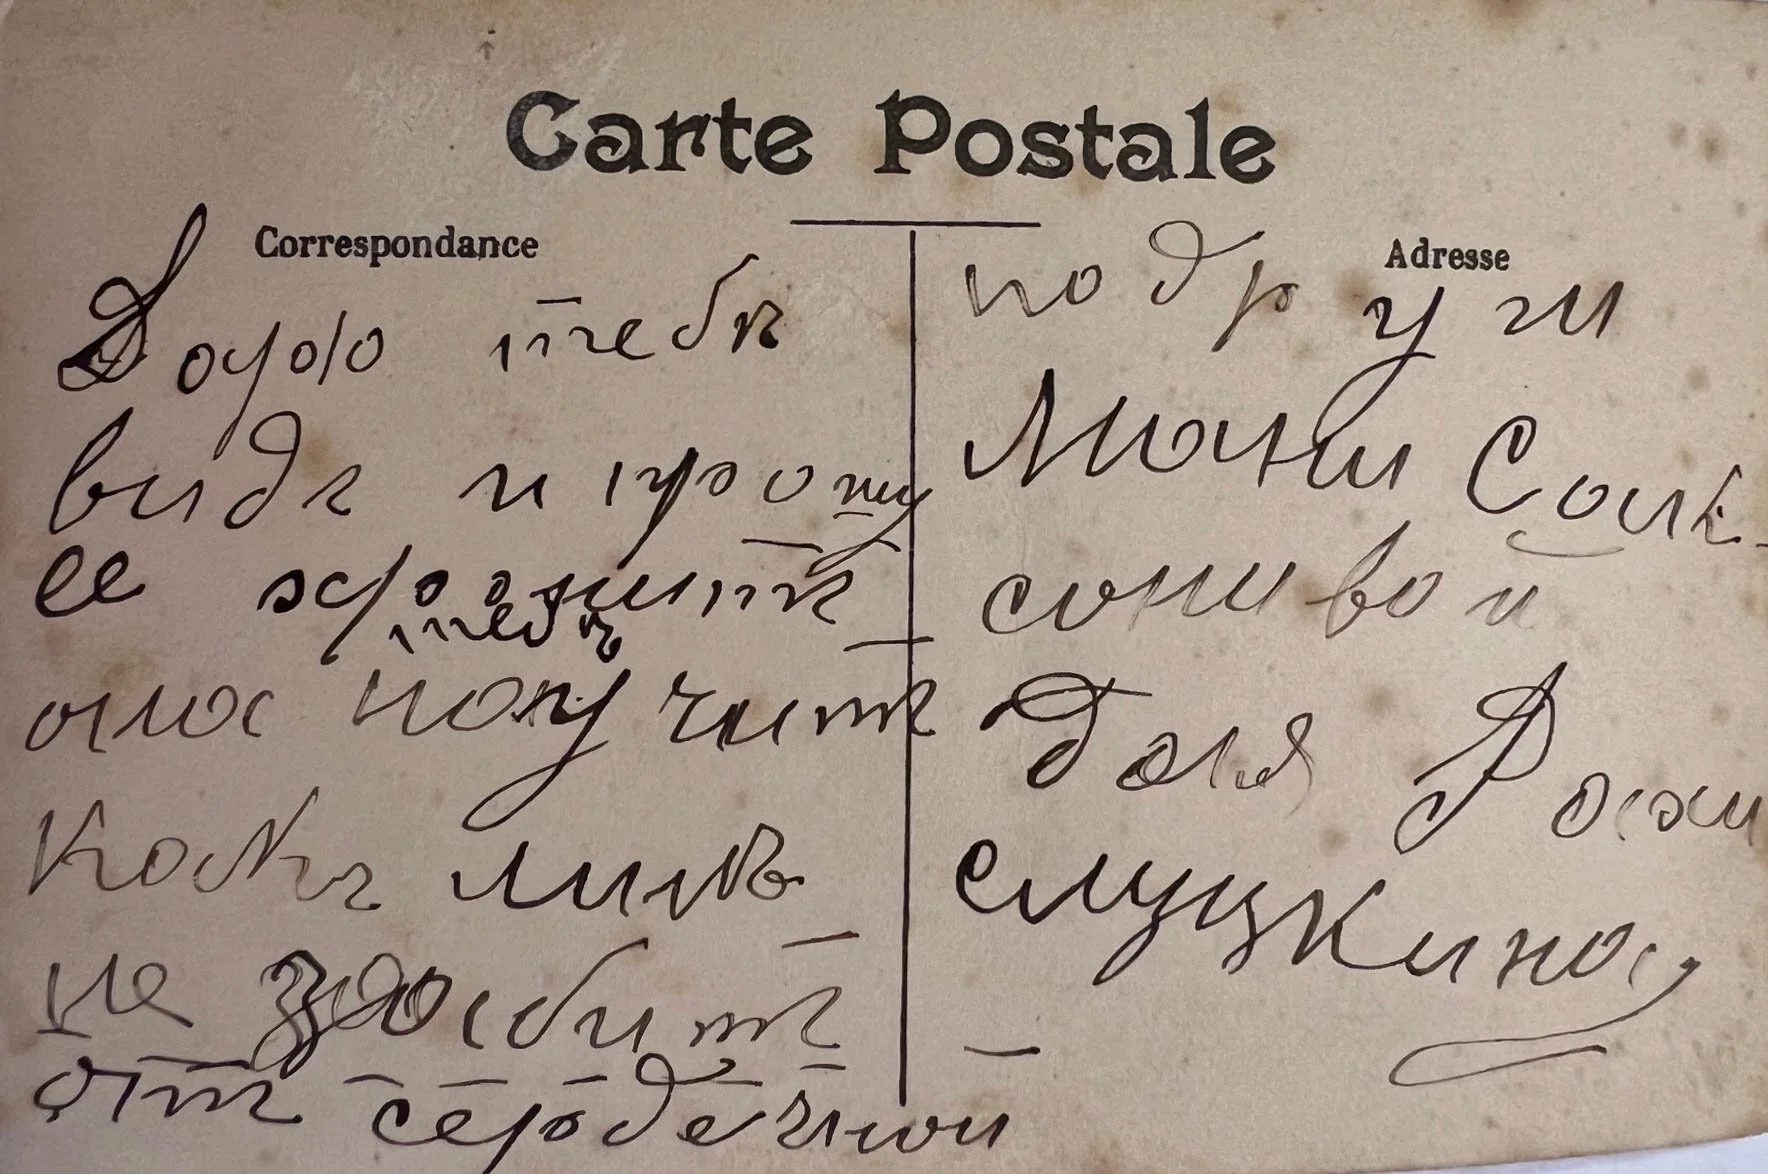 Carte Postale
Correspondance
Дорю тебѣ
видъ и прошу
ее хронить
тебѣ
она получит
Когда лишь
не заобит
от сердечной
Adresse
подруги
Мани Соло-
соновой
для Рохи
слуцкина,